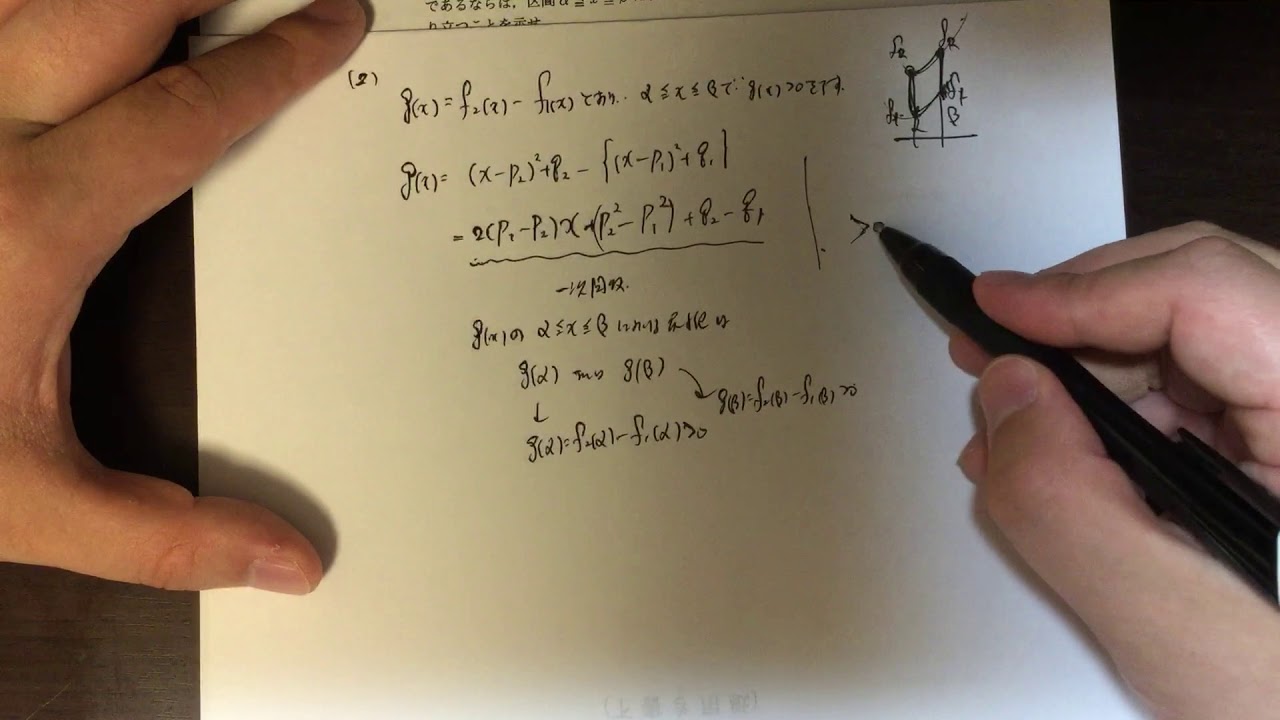 であるならば、区間 α ≦ x ≦ β
り立つことを示せ
(2)
g(x) = f₂(x) - f₁(x) とおり. α ≦ x ≦ β で g(x) > 0 を示す.
g(x) = (x-p₂)²+q₂ - {(x-p₁)²+q₁}
= 2(p₁-p₂)x+(p₂²-p₁²)+q₂-q₁
一次関数.
g(x)の α ≦ x ≦ β における
g(α) g(β)
g(β)=f₂(β)-f₁(β)>0
↓
g(α)=f₂(α)-f₁(α)>0
f₂ f₂
f₁ f₁
α β
>